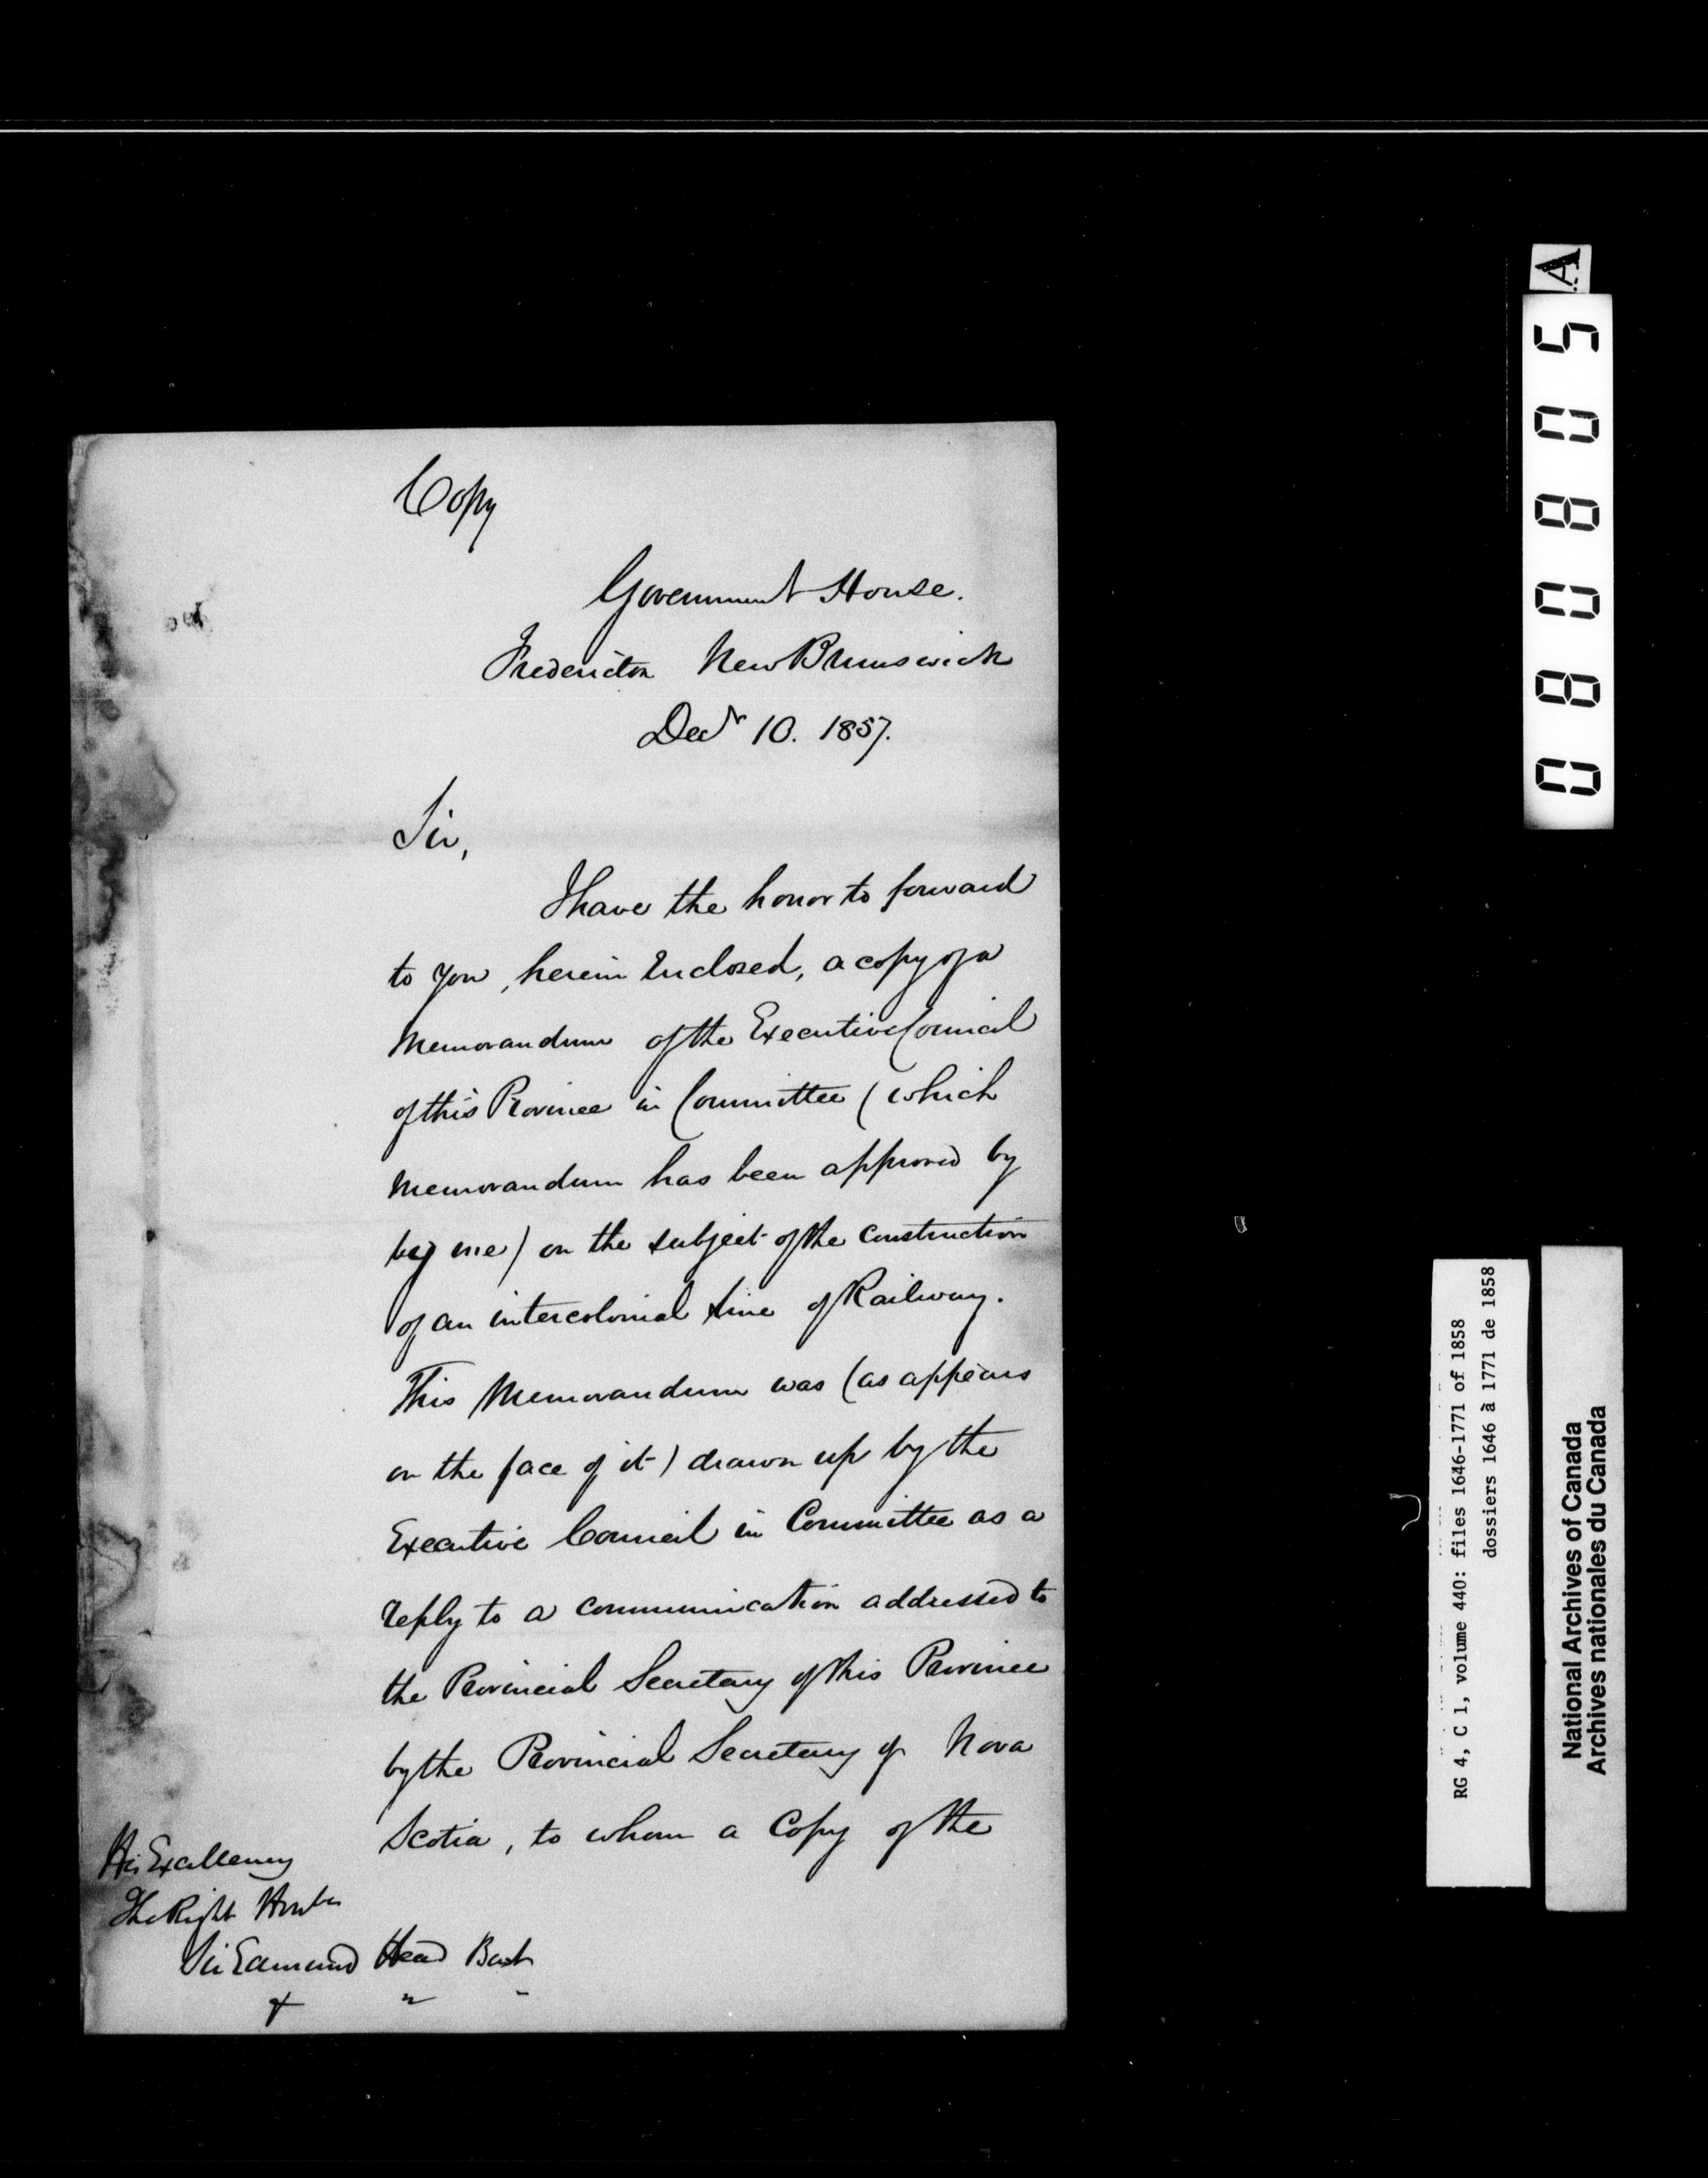 Copy
Government House.
Fredericton New Brunswick
Decr 10. 1857.
Sir,
I have the honor to forward
to you, herein Enclosed, a copy of a
Memorandum of the Executive Council
of this Province in Committee (which
Memorandum has been approved by
by me) on the subject of the construction
of an intercolonial line of Railway.
This Memorandum was (as appears
on the face of it) drawn up by the
Executive Council in Committee as a
reply to a communication addressed to
the Provincial Secretary of this Province
by the Provincial Secretary of Nova
Scotia, to whom a Copy of the
His Excellency
The Right Honble
Sir Edmund Head Bart
& " "
A
088085
RG 4, C 1, volume 440: files 1646-1771 of 1858
dossiers 1646 à 1771 de 1858
National Archives of Canada
Archives nationales du Canada